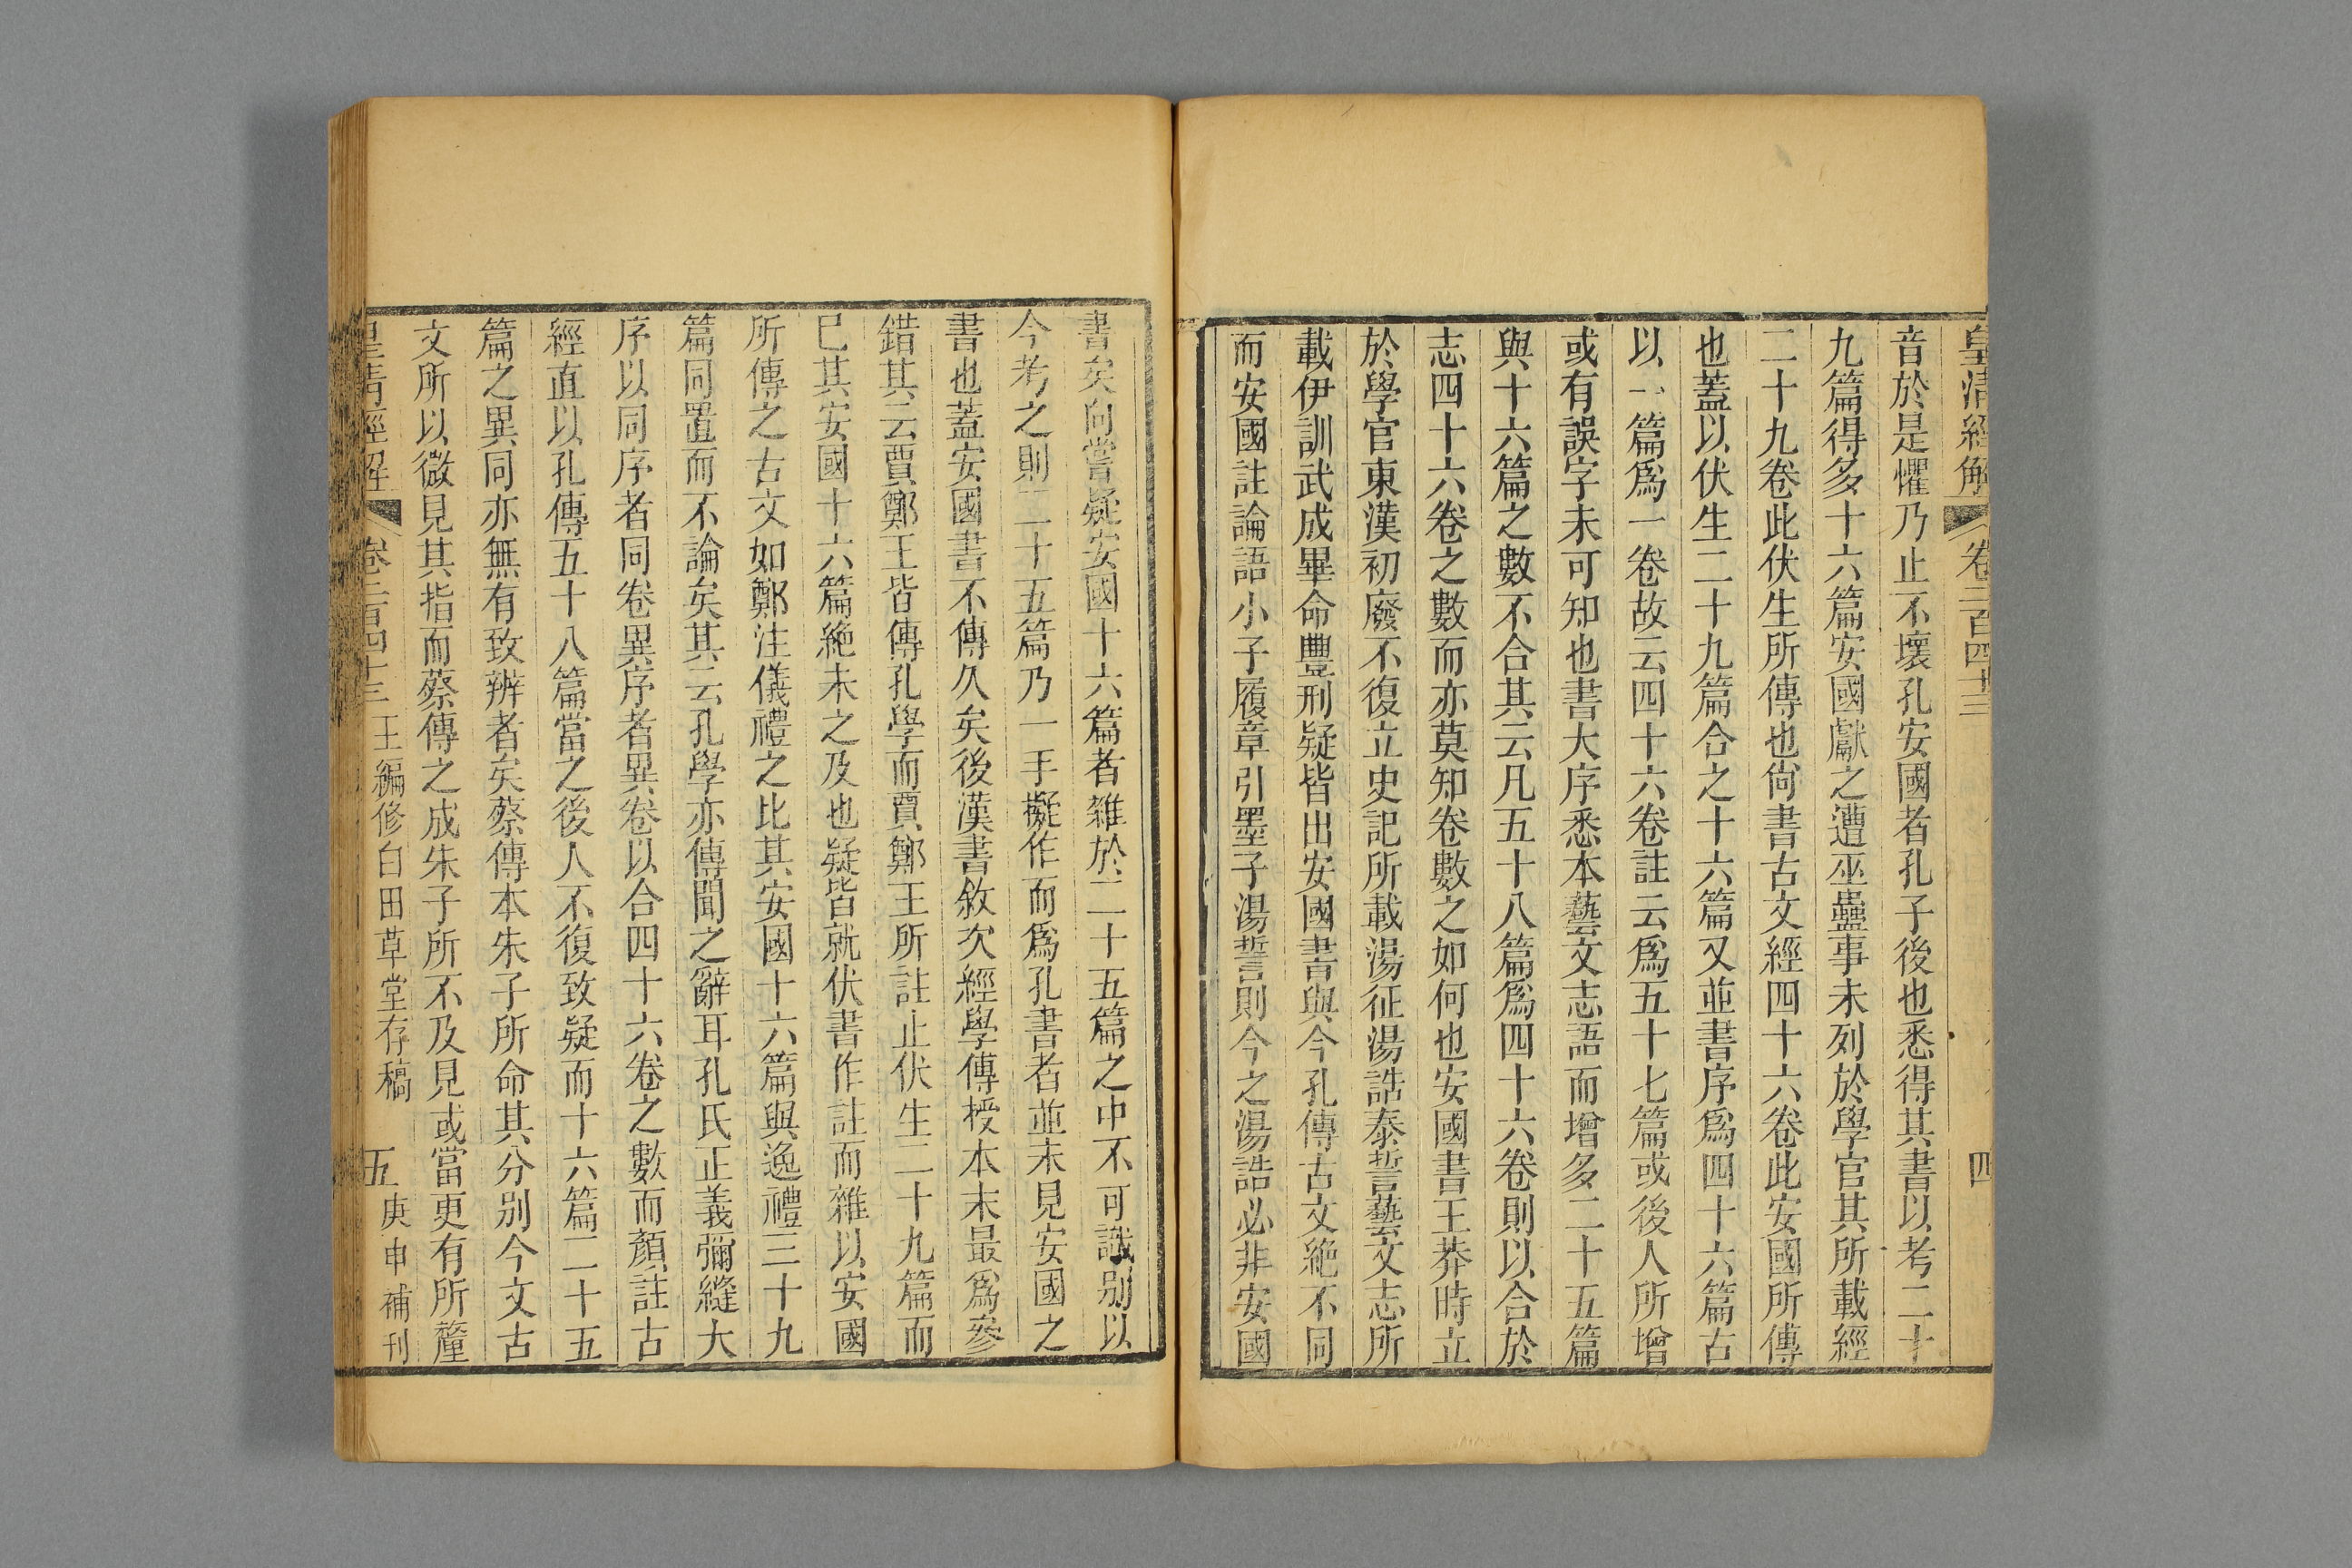 皇清經解 卷二百四十三 四
音於是懼乃止不壞孔安國者孔子後也悉得其書以考二十
九篇得多十六篇安國獻之遭巫蠱事未列於學官其所載經
二十九卷此伏生所傳也尙書古文經四十六卷此安國所傳
也蓋以伏生二十九篇合之十六篇又並書序爲四十六篇古
以一篇爲一卷故云四十六卷註云爲五十七篇或後人所增
或有誤字未可知也書大序悉本藝文志語而增多二十五篇
與十六篇之數不合其云凡五十八篇爲四十六卷則以合於
志四十六卷之數而亦莫知卷數之如何也安國書王莽時立
於學官東漢初廢不復立史記所載湯征湯誥泰誓藝文志所
載伊訓武成畢命豐刑疑皆出安國書與今孔傳古文絶不同
而安國註論語小子履章引墨子湯誓則今之湯誥必非安國
書矣向嘗疑安國十六篇者雜於二十五篇之中不可識别以
今考之則二十五篇乃一手擬作而爲孔書者並未見安國之
書也蓋安國書不傳久矣後漢書敘次經學傳授本末最爲參
錯其云賈鄭王皆傳孔學而賈鄭王所註止伏生二十九篇而
已其安國十六篇絶未之及也疑皆就伏書作註而雜以安國
所傳之古文如鄭注儀禮之比其安國十六篇與逸禮三十九
篇同置而不論矣其云孔學亦傳聞之辭耳孔氏正義彌縫大
序以同序者同卷異序者異卷以合四十六卷之數而顏註古
經直以孔傳五十八篇當之後人不復致疑而十六篇二十五
篇之異同亦無有致辨者矣蔡傳本朱子所命其分别今文古
文所以微見其指而蔡傳之成朱子所不及見或當更有所釐
皇清經解 卷二百四十三 王編修白田草堂存稿 五 庚申補刊